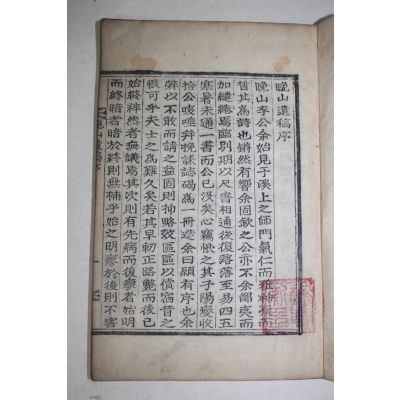 晚山遺稿序
晚山李公余始見于溪上之師門氣仁而雅神凝而
哲其爲詩也鏘然有響余固欽之公亦不余鄙夷而
加繾綣焉臨別期以尺書相通後復落落至易四五
寒暑未通一書而公已沒矣心竊悵之其子陽慶收
拾公咳唾幷挽誄誌碣爲一冊造余曰願有序也余
辭以不敢而請之益固則抑略效區區以償宿昔之
恨可乎夫士之爲難久矣若其早軔正路斃而後已
始終粹然者無議焉其次則有先病而後瘳者始明
而終暗者暗於終則無補乎始之明瘳於後則不害
山遺稿序